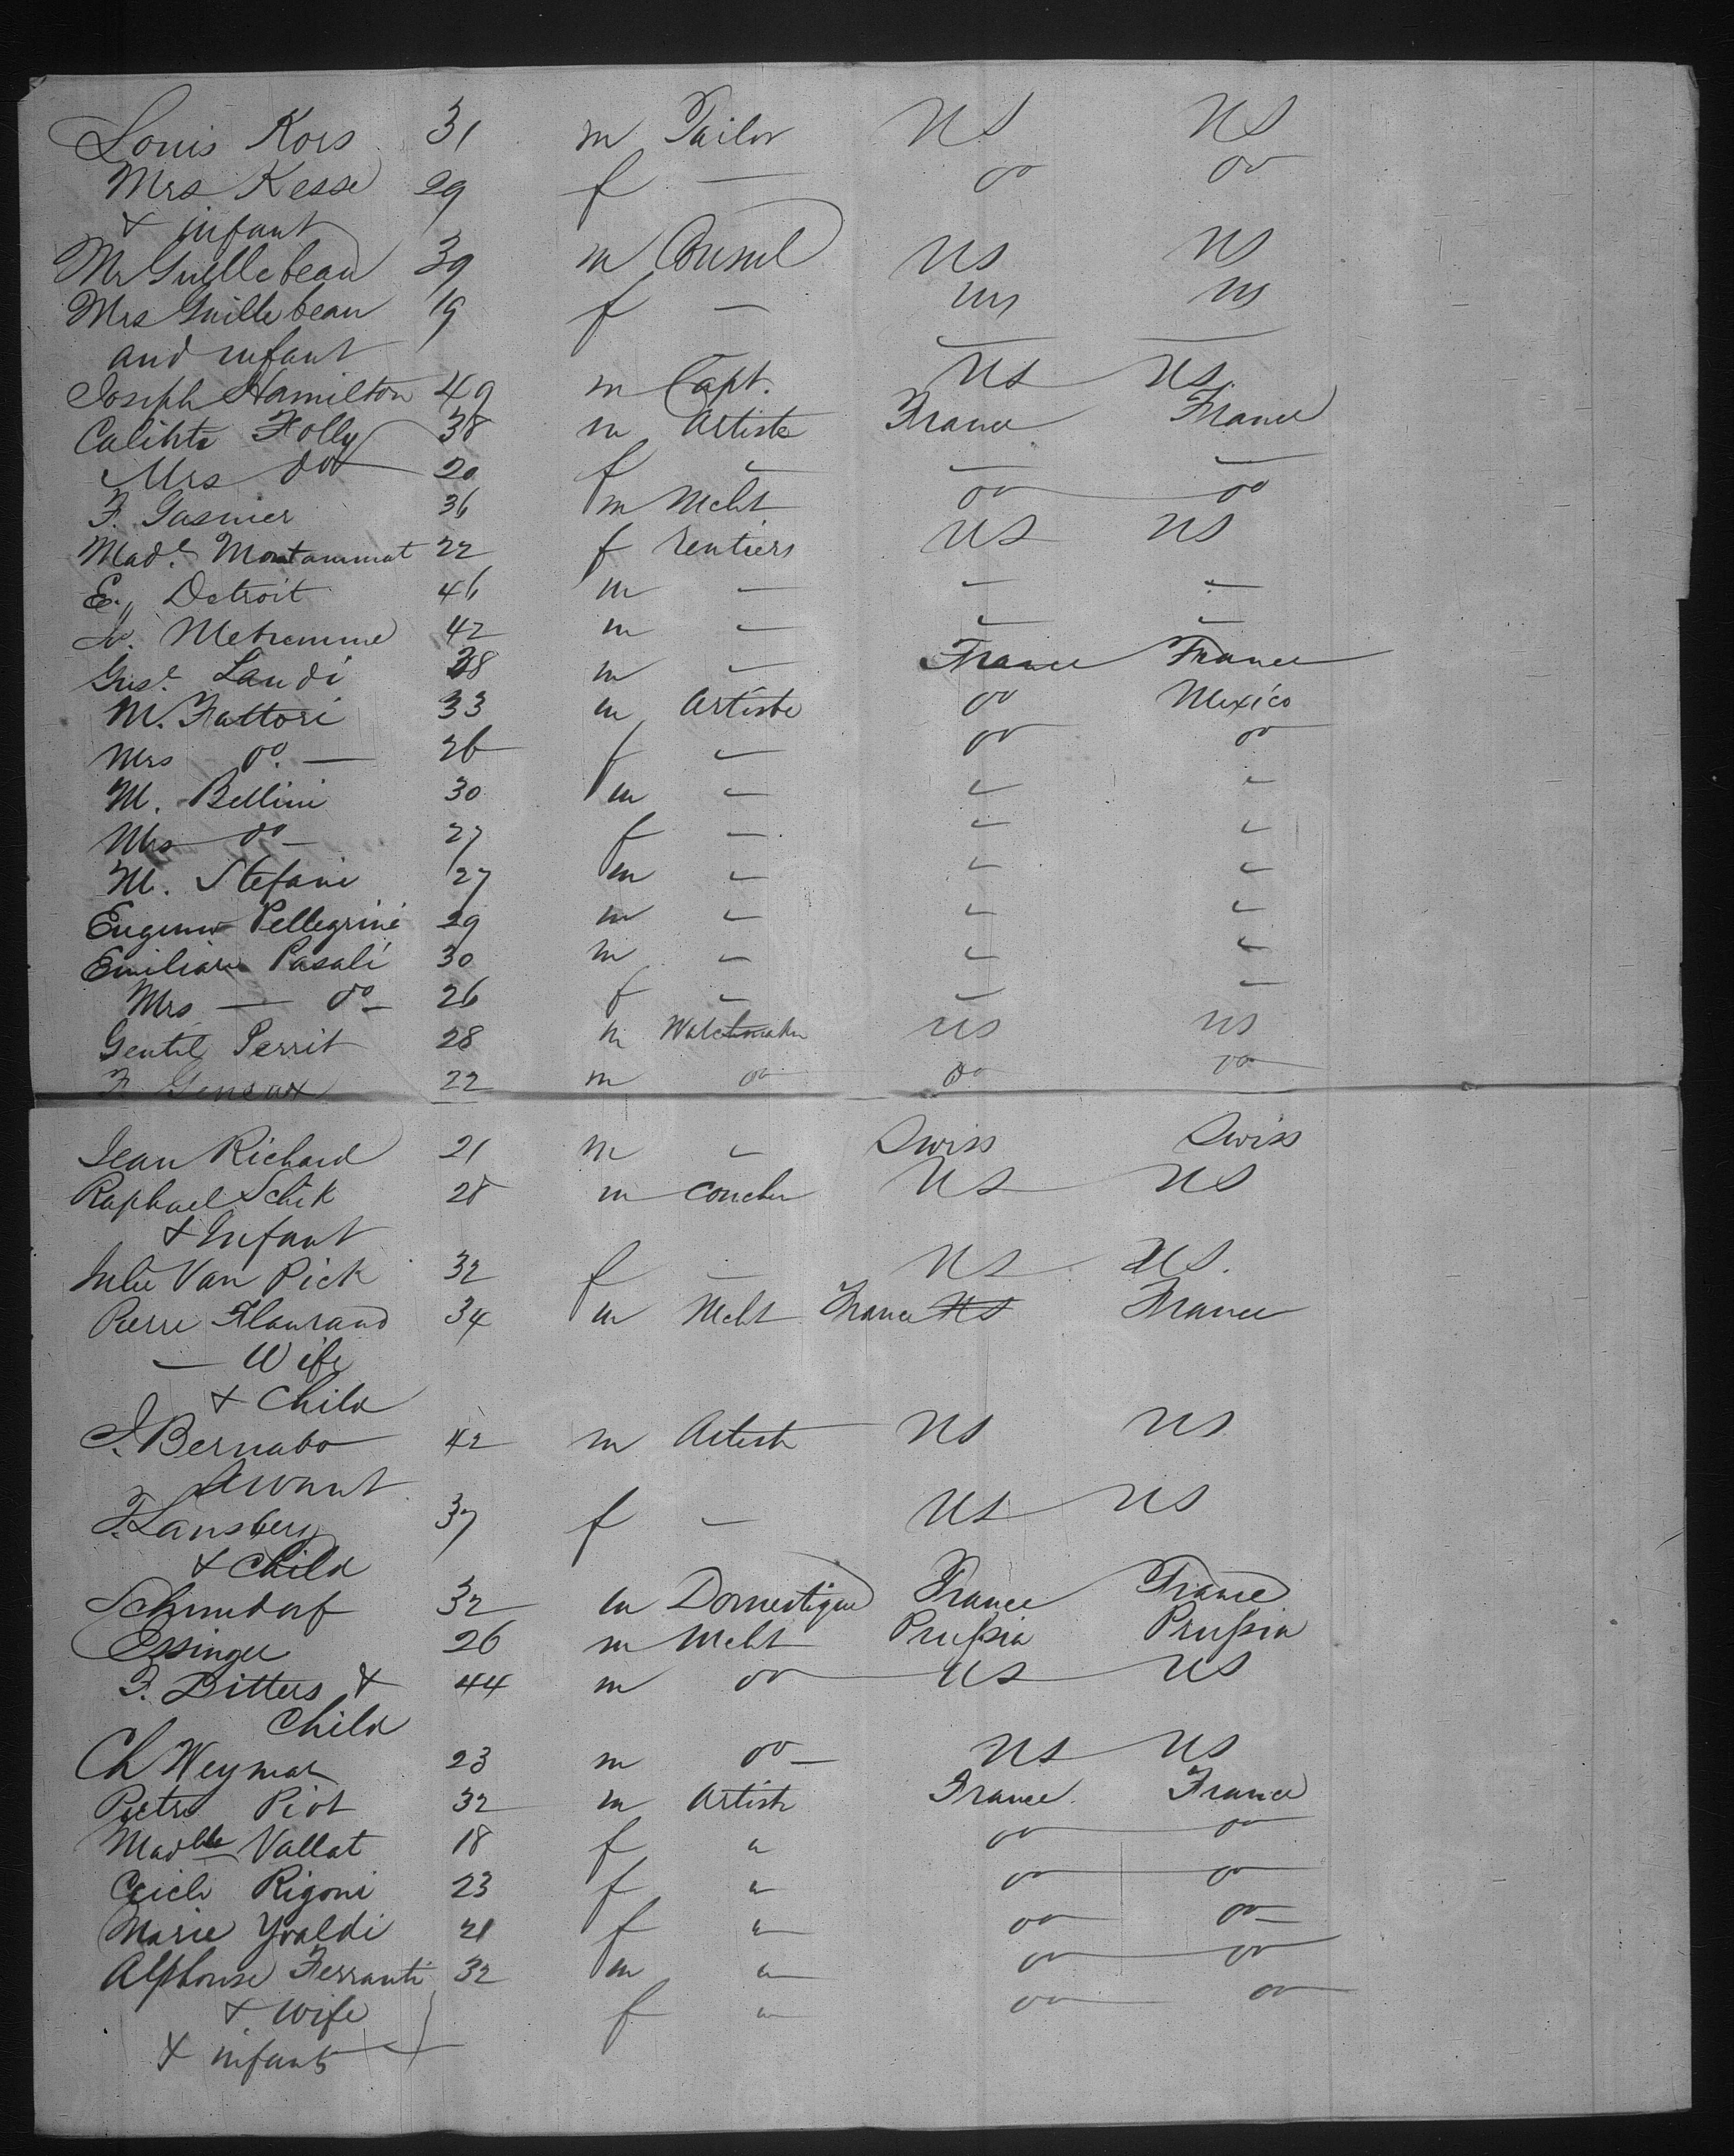 Louis Kors 31 m Tailor US US
Mrs Kesse 29 f — do do
& infant
Mr Guillebeau 39 m Consul US US
Mrs Guillebeau 19 f — US US
and infant — —
Joseph Hamilton 49 m Capt. US US
Calixte Folly 38 m Artiste France France
Mrs do 20 f " — —
F. Gasnier 36 m Mcht do do
Made. Montammat 22 f rentiers US US
E. Detroit 46 m — " "
Metremme 42 m " " "
Gust. Landi 28 m " France France
M. Fattori 33 m Artiste do Mexico
Mrs do — 26 f " do do
M. Bellini 30 m " " "
Mrs do — 27 f — " "
M. Stefani 27 m " " "
Eugenio Pellegrini 29 m " " "
Emiliano Pasali 30 m " " "
Mrs — do — 26 f " " "
Gentil Perrit 28 m Watchmaker US US
F. Gensax 22 m do do do
Jean Richard 21 m " Swiss Swiss
Raphael Schik 28 m US US
& Infant
Julie Van Pick 32 f — US US.
Pierre Flaurand 34 m Mcht France US France
— Wife
& Child
J. Bernabo 42 m Artist US US
Servant
F. Lansberg 37 f — US US
& Child
Schmidorf 32 m Domestique France France
Essinger 26 m Mcht Prussia Prussia
F. Ditters & 44 m do US US
Child
Ch Weymar 23 m do — US US
Pietro Piot 32 m Artist France France
Madlle Vallat 18 f " do do
Cecile Rigoni 23 f " do do
Marie Yvaldi 21 f " do do
Alphonse Ferranti 32 m " do do
& Wife f " do do
& infants